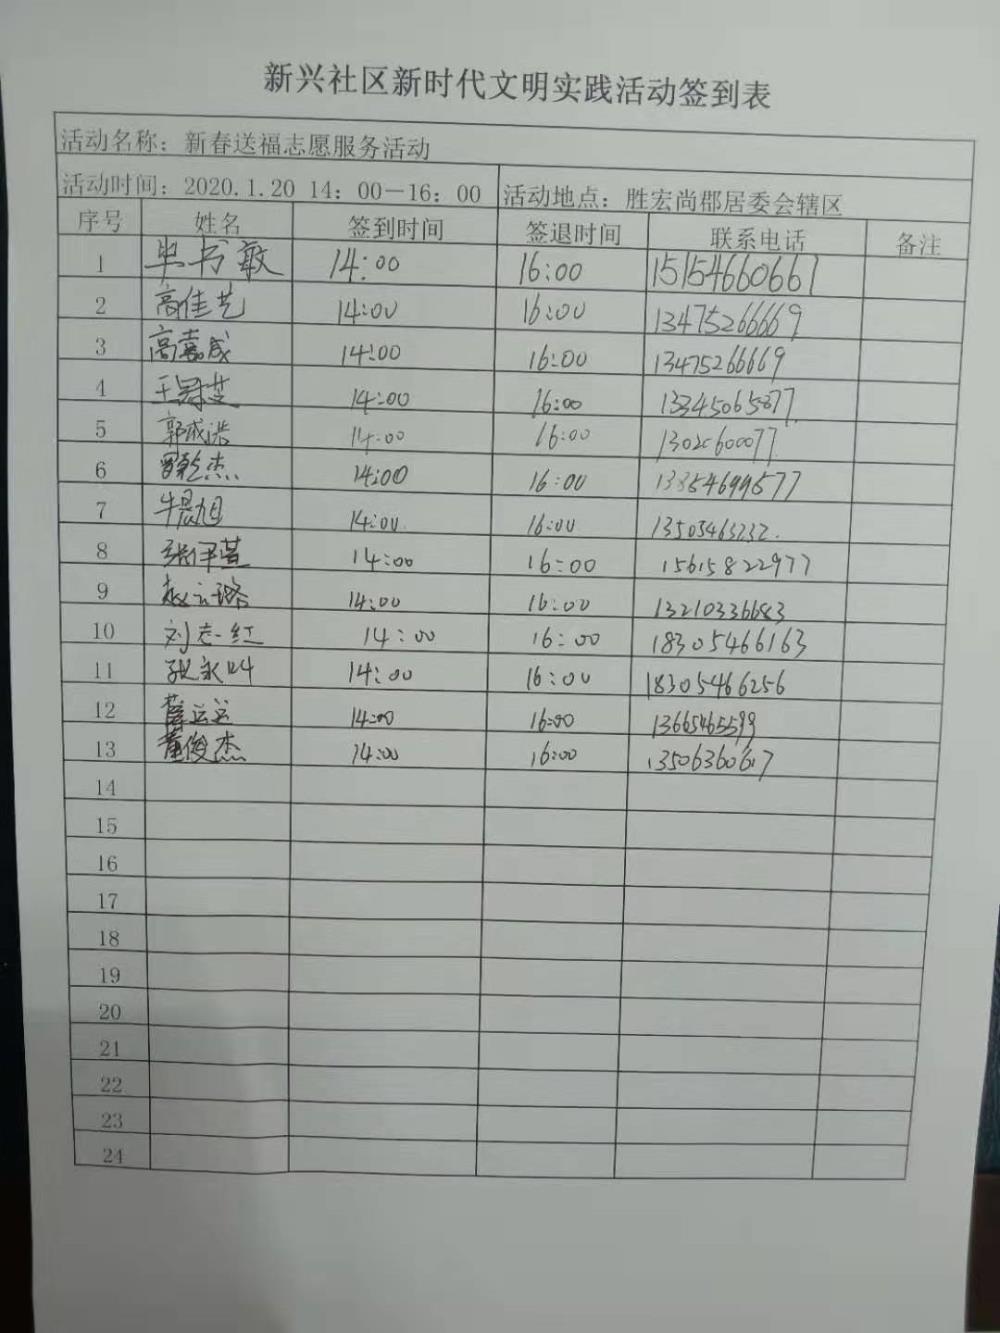 新兴社区新时代文明实践活动签到表
活动名称：新春送福志愿服务活动
活动时间：2020.1.20 14：00－16：00 活动地点：胜宏尚郡居委会辖区
序号 姓名 签到时间 签退时间 联系电话 备注
1 毕书敏 14:00 16:00 15154660661
2 高佳艺 14:00 16:00 13475266669
3 高嘉成 14:00 16:00 13475266669
4 王冠芝 14:00 16:00 13345065877
5 郭成浩 14:00 16:00
6 杰 14:00 16:00 13854699577
7 牛晨旭 14:00 16:00 13505463232.
8 张伊萱 14:00 16:00 15615822977
9 赵云璐 14:00 16:00 13210336683
10 刘志红 14:00 16:00 18305466163
11 张永叫 14:00 16:00 18305466256
12 薛运运 14:00 16:00 13665465599
13 董俊杰 14:00 16:00 13506360617
14
15
16
17
18
19
20
21
22
23
24